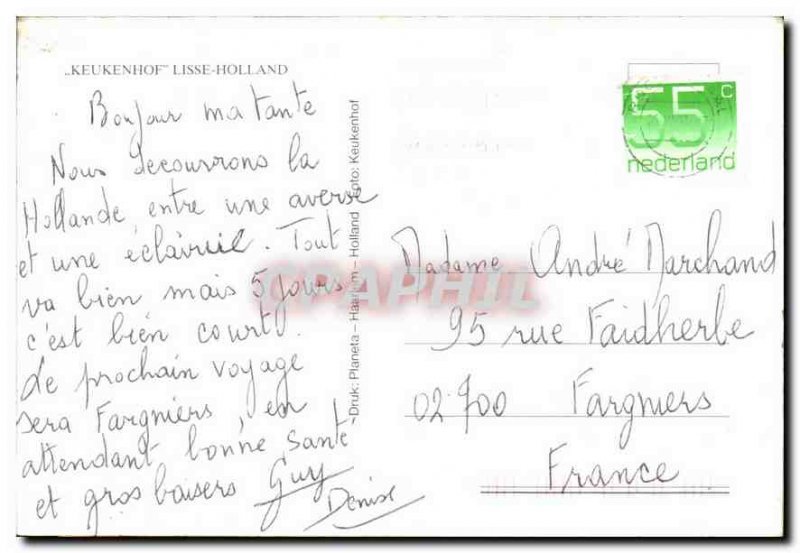 „KEUKENHOF" LISSE-HOLLAND
Bonjour ma tante
Nous decouvrons la
Hollande, entre une averse
et une éclaircie. Tout
va bien mais 5 jours
c'est bien court.
Le prochain voyage
sera Fargniers, en
attendant bonne santé
et gros baisers Guy
Denise
Druk: Planeta – Haarlem – Holland Foto: Keukenhof
CPAPHIL
55 c
nederland
Madame André Marchand
95 rue Faidherbe
02700 Fargniers
France